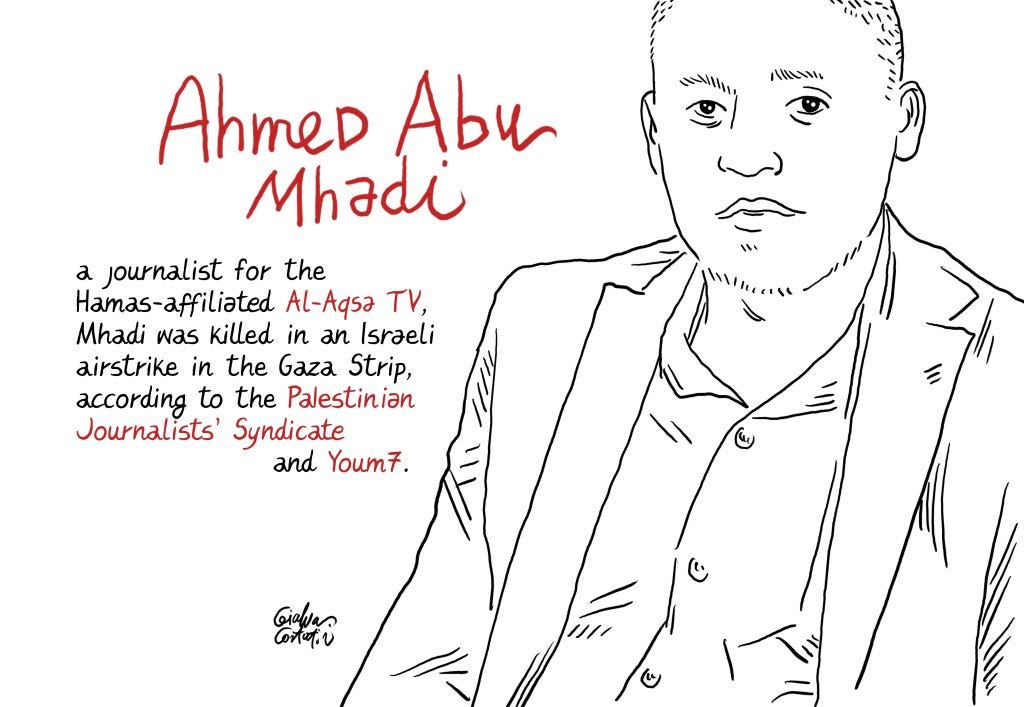 Ahmed Abu
Mhadi
a journalist for the
Hamas-affiliated Al-Aqsa TV,
Mhadi was killed in an Israeli
airstrike in the Gaza Strip,
according to the Palestinian
Journalists' Syndicate
and Youm7.